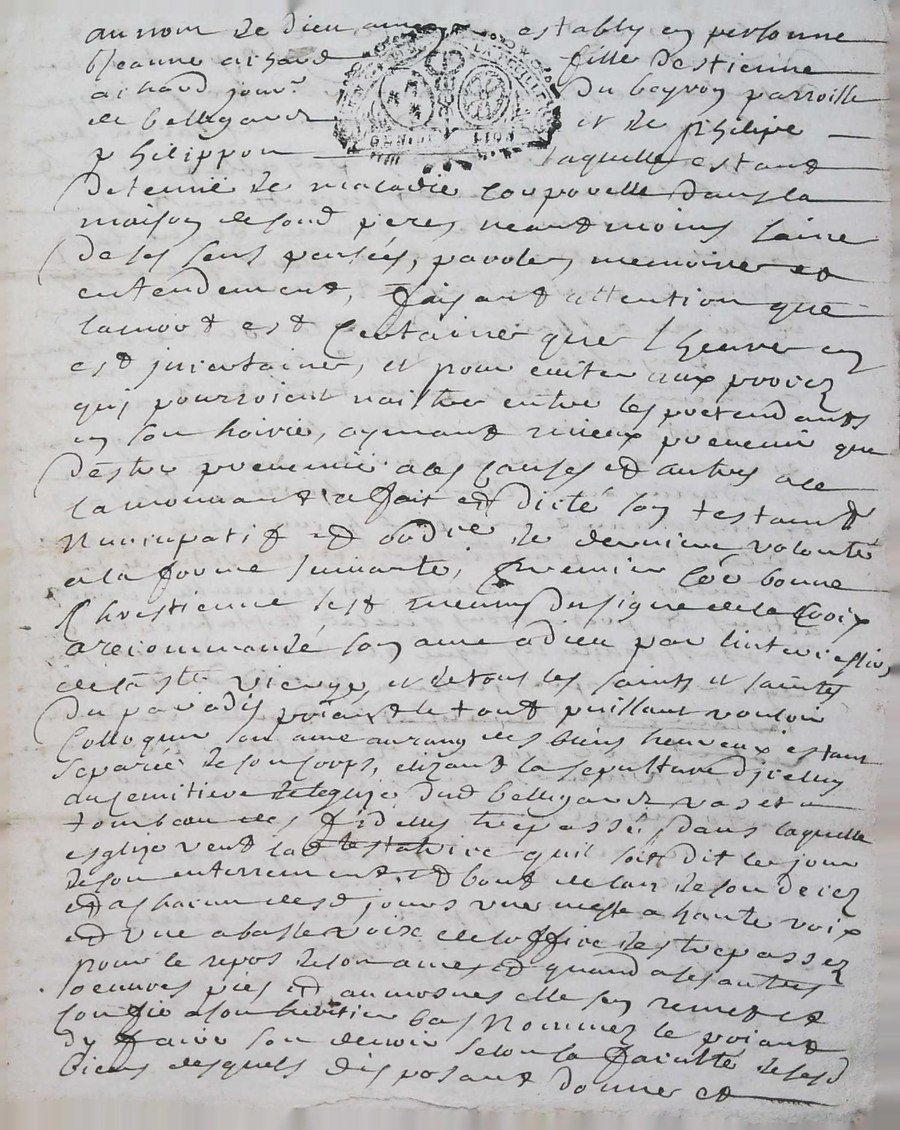 au nom de dieu amen establÿ en personne
Jeanne achard fille destienne
achard jour.r du beyron parroisse
de bellegarde et de philipe
philippon laquelle estant
detenue de maladie corporelle dans la
maison desond peres neantmoins saine
de ses sens pensées, paroles memoires et
entendement, faisant attention que
lamort est certaine que lheure en
est jncertaine, et pour eviter aux procez
quj pourroient naistre entre les pretendants
en son hoirie, aymant mieux prevenir que
destre prevenue a ces causes et autres ace
lamouvant a fait et dicté son testamt
Nuncupatif et ordre de derniere volonté
ala forme suivante, premier coe bonne
Chrestienne sest munie du signe dela Croix
a recommandé son ame a dieu par lintercession
de la ste vierge, et detous les saints et saintes
du paradis priant le tout puissant vouloir
Colloquer son ame aurang des biens heureux estant
separée de son corps, elizant la sepulture djcelluy
au semitiere deleglize dud bellegarde vas et
tombeau des fidelles trepassés, dans laquelle
esglize veut lad testatrice quil soit dit le jour
de son enterrement et bout delan de son decez
et achacun desd jours une messe a haute voix
et une abasse voix de loffice des trepassez
pour le repos de son ame et quand a ses autres
oeuvres pies et aumosnes elle sen remet et
confie a son heritier bas Nommez le priant
dy faire son devoir selon la faculté de sesd
biens desquels disposant donne et
GENER DE
LA VILLE
LION